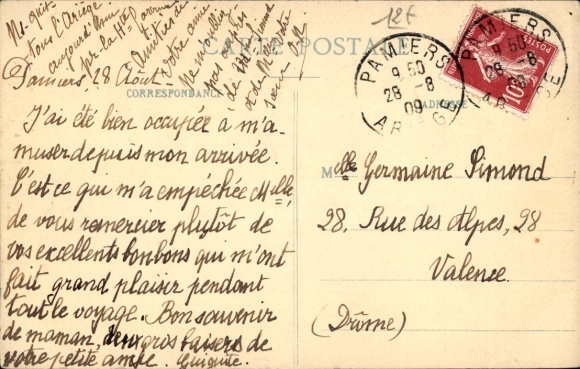 12f
CARTE POSTALE
CORRESPONDANCE
ADRESSE
Pamiers, 28 Août
J'ai été bien occupée à m'a-
muser depuis mon arrivée.
C'est ce qui m'a empéchée Melle,
de vous remercier plutôt de
vos excellents bonbons qui m'ont
fait grand plaisir pendant
tout le voyage. Bon souvenir
de maman, deux gros baisers de
votre petite amie. Guiguite.
Ns. quit-
tons l'Ariège
aujourd'hui
par la Hte
Amitiés
votre amie
Ne m'oubliez
pas auprès
de
et de
PAMIERS
9 50
28 - 8
09
ARIEGE
PAMIERS
9 50
28 - 8
09
ARIEGE
POSTES
10c
Melle Germaine Simond
28, Rue des Alpes, 28
Valence.
(Drôme)